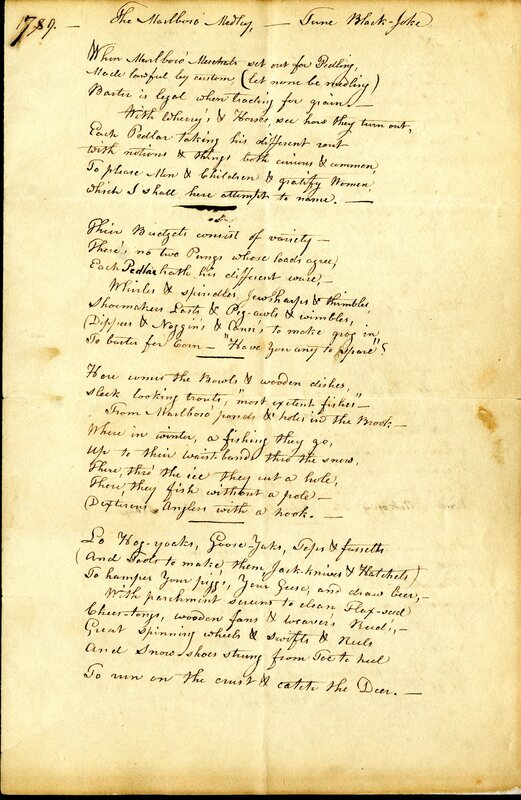 1789. — The Marlboro' Medley, — Tune Black-Joke
When Marlboro' Merchats set out for Pedling,
Made lawful by custom (let none be medling)
Barter is legal when trading for grain —
With Wherry's & Horses, see how they turn out,
Each Pedlar taking his different rout
With notions & things both curious & common,
To please Men & Children & gratify Women,
Which I shall here attempt to name. —
Their Budgets consist of variety —
There's no two Pungs whose loads agree,
Each Pedlar hath his different ware,
Whirles & spindles, Jewsharps & thimbles,
Shoemakers Lasts & Peg-awls & wimbles,
(Dippers & Noggins & Cann's to make grog in,
To barter for Corn — "Have You any to spare"?
Here comes the Bowls & wooden dishes,
Sleek looking trouts, "most extent fishes" —
From Marlboro' ponds & holes in the Brook —
Where in winter, a fishing they go,
Up to their waist-bands thro the snow,
There, thro' the ice they cut a hole,
There, they fish without a pole —
Dexterous Anglers with a hook. —
Lo Hog-yoaks, Goose-Yoks, Taps & fussetts
(And Tools to make them, Jack-knives & Hatchets)
To hamper Your pigg's, Your Geese, and draw beer, —
With parchment screens to clean Flax-seed
Chees-tongs, wooden fans & weavers Reed's, —
Great spinning wheels & swifts & Reels
And Snow-shoes strung from Toe to heel
To run on the crust & catch the Deer. —